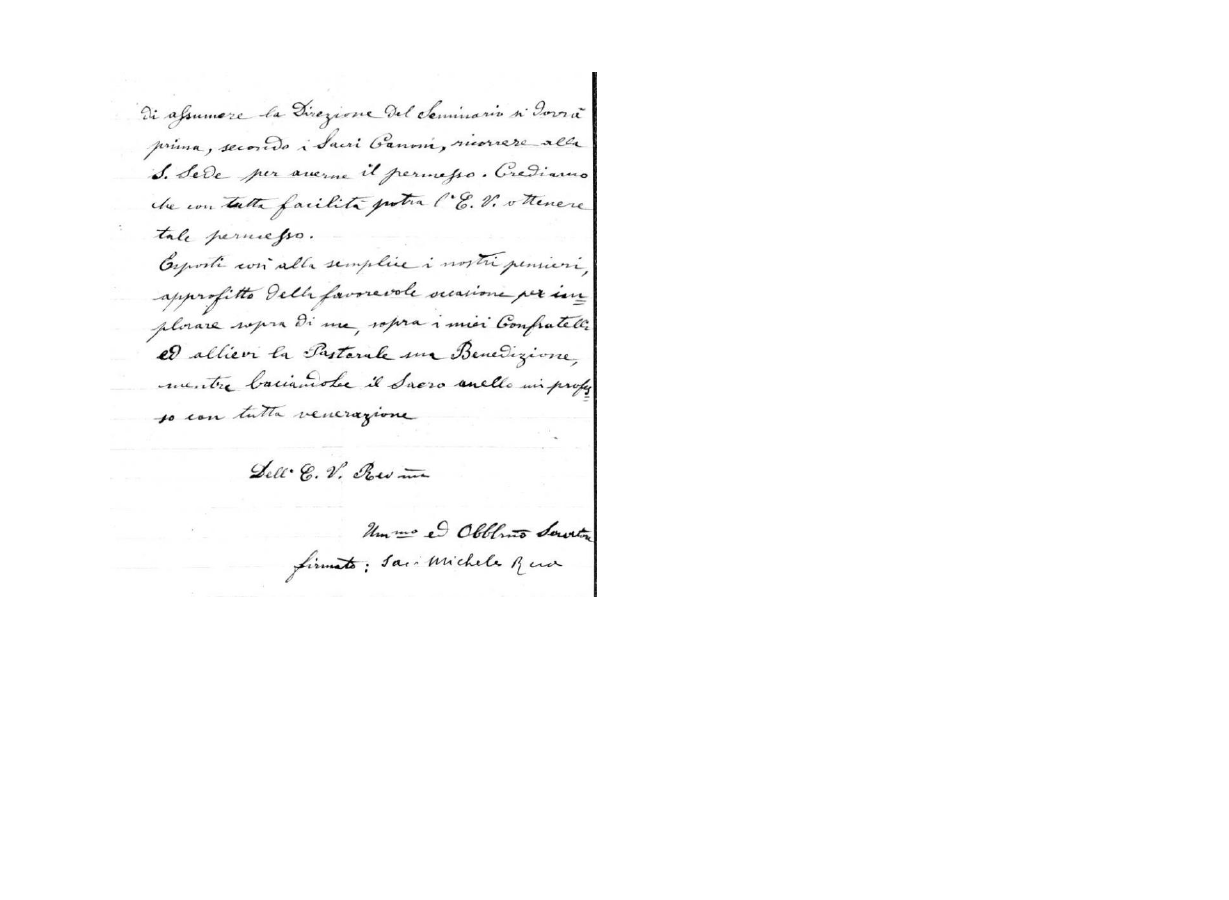 di assumere la Direzione del Seminario si dovrà
prima, secondo i Sacri Canoni, ricorrere alla
S. Sede per averne il permesso. Crediamo
che con tutta facilità potra l'E. V. ottenere
tale permesso.
Esposti così alla semplice i nostri pensieri,
approfitto della favorevole occasione per im=
plorare sopra di me, sopra i miei Confratelli
ed allievi la Pastorale sua Benedizione,
mentre baciandole il Sacro anello mi profes=
so con tutta venerazione
Dell'E. V. Rev ma
Um mo ed Obblmo Servitore
firmato: Sac. Michele Rua